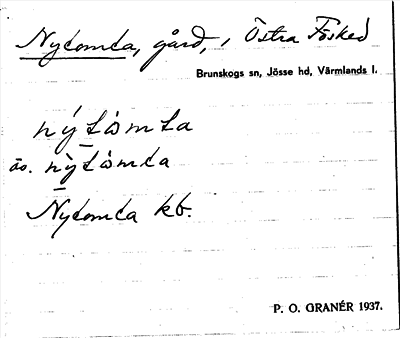 Nytomta, gård, i Östra Fösked
Brunskogs sn, Jösse hd, Värmlands l.
nýtòmta
äs. nỳtòmta
Nytomta kb.
P. O. GRANÉR 1937.